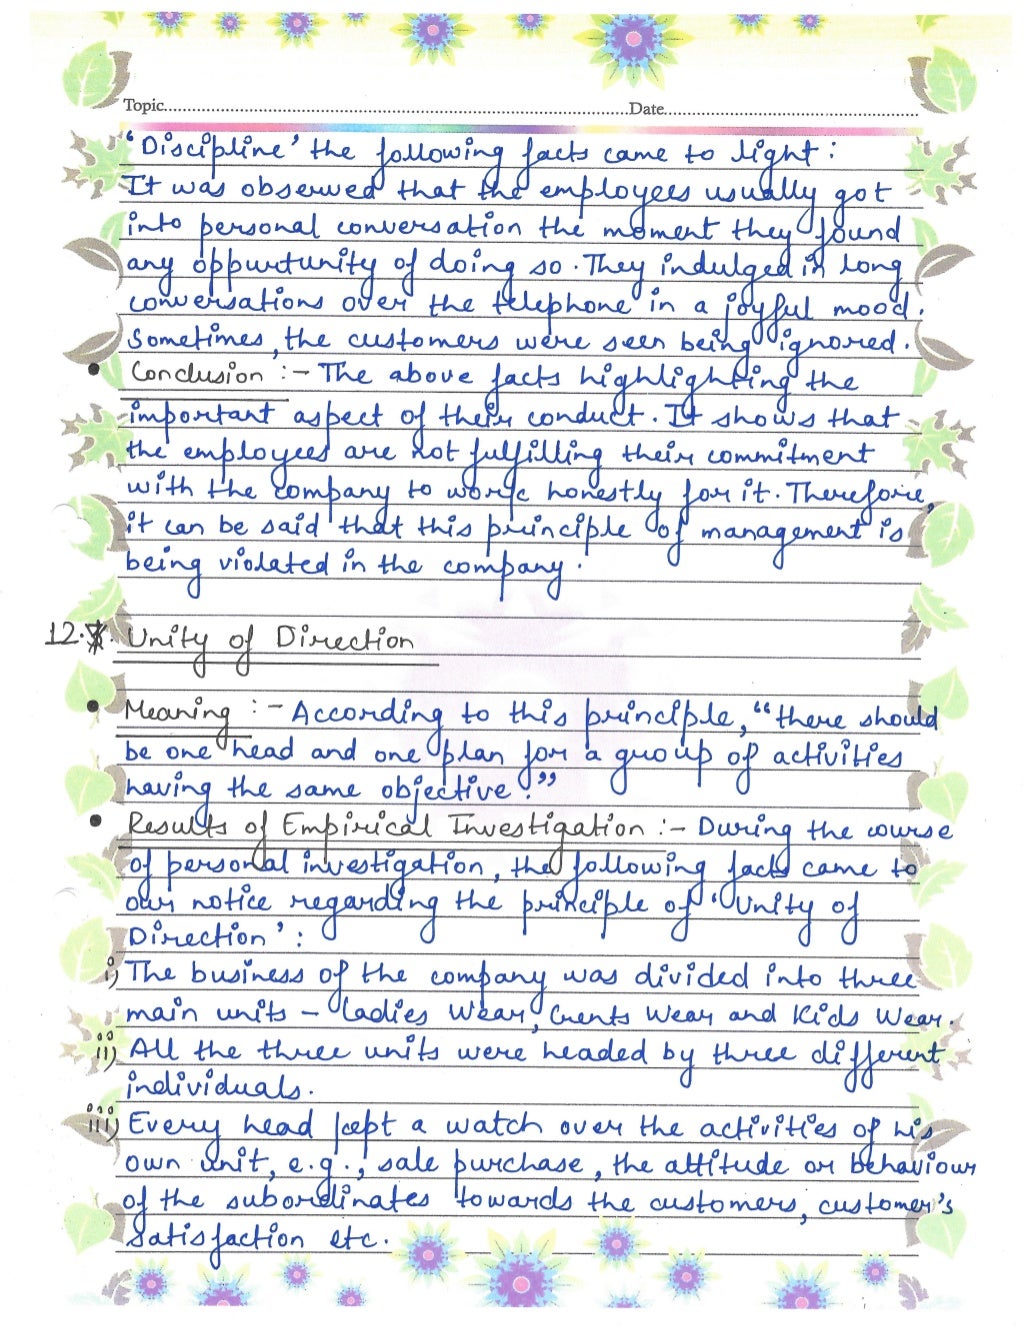 Topic..........Date..........
'Discipline' the following facts came to light :
It was observed that the employees usually got
into personal conversation the moment they found
any oppurtunity of doing so. They indulged in long
conversations over the telephone in a joyful mood.
Sometimes, the customers were seen being ignored.
• Conclusion :- The above facts highlighting the
important aspect of their conduct. It shows that
the employees are not fulfilling their commitment
with the company to work honestly for it. Therefore,
it can be said that this principle of management is
being violated in the company.
12. Unity of Direction
• Meaning :- According to this principle, "there should
be one head and one plan for a group of activities
having the same objective."
• Results of Empirical Investigation :- During the course
of personal investigation, the following facts came to
our notice regarding the principle of 'Unity of
Direction' :
i) The business of the company was divided into three
main units - Ladies Wear, Gents Wear and Kids Wear.
ii) All the three units were headed by three different
individuals.
iii) Every head kept a watch over the activities of his
own unit, e.g., sale purchase, the attitude or behaviour
of the subordinates towards the customers, customer's
satisfaction etc.